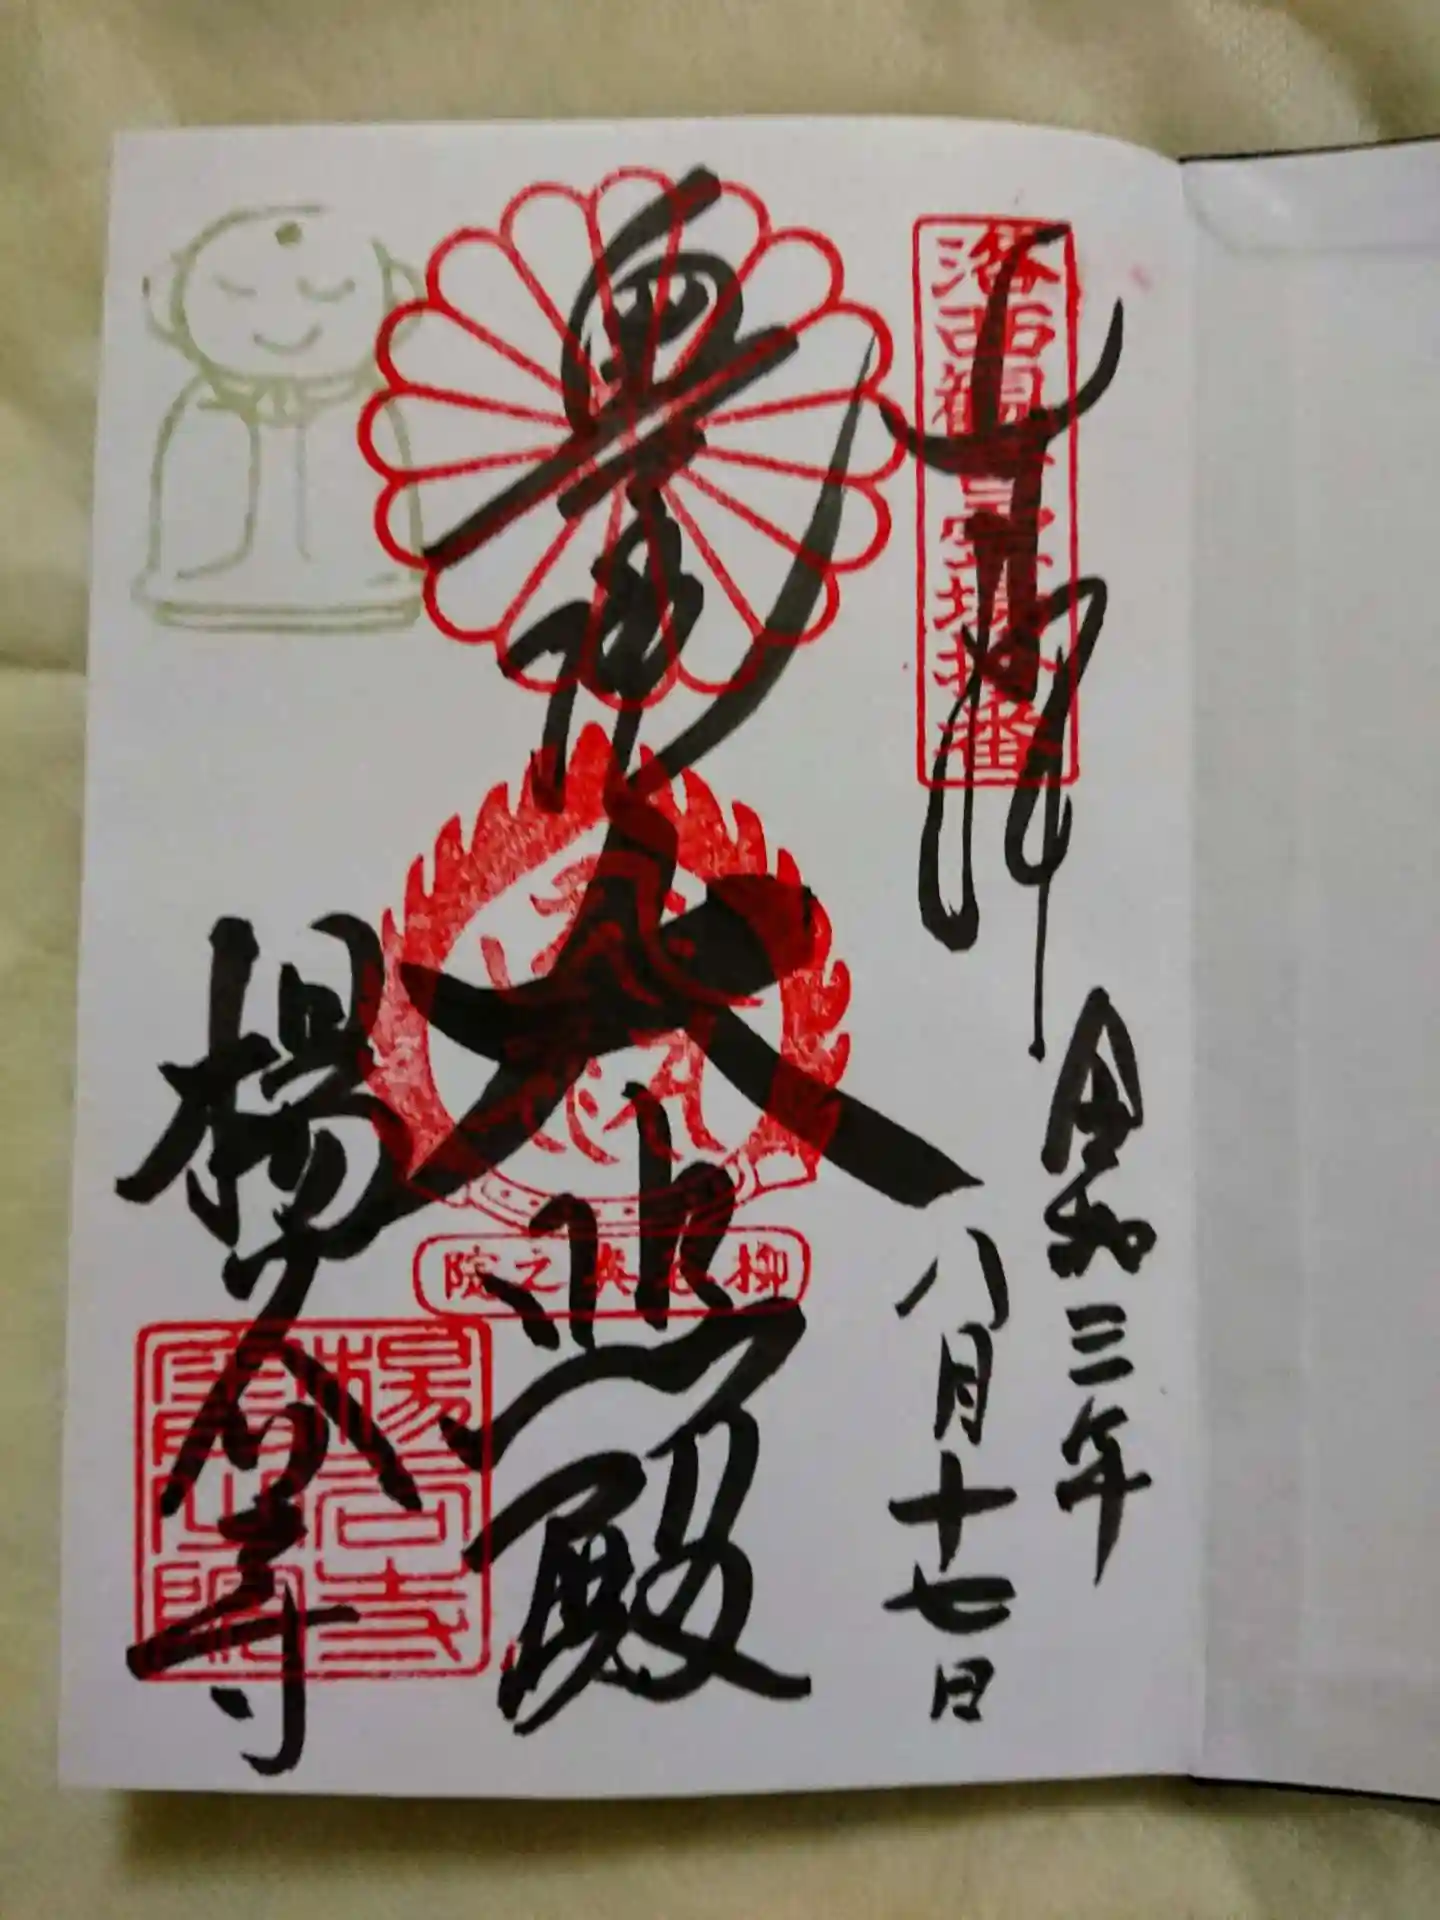 奉拝
洛西観音霊場拾番
令和三年
八月十七日
大悲殿
柳谷奥之院
楊谷寺
楊谷寺